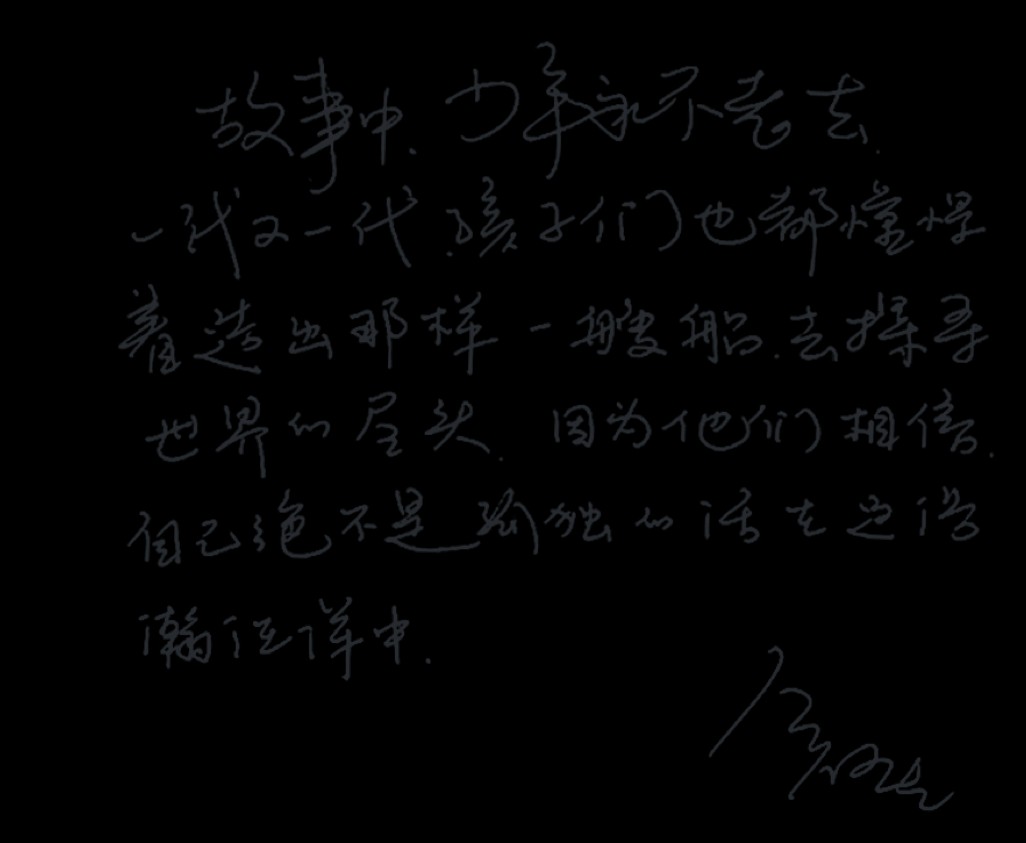 故事中.少年永不老去.
一代又一代.孩子们也都憧憬
着造出那样一艘船.去探寻
世界的尽头.因为他们相信.
自己绝不是孤独的活在这
瀚海洋中.